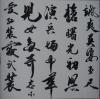 颯爽英姿五尺
槍曙光初照
演兵場中華
兒女多奇志不
愛紅裝愛武裝